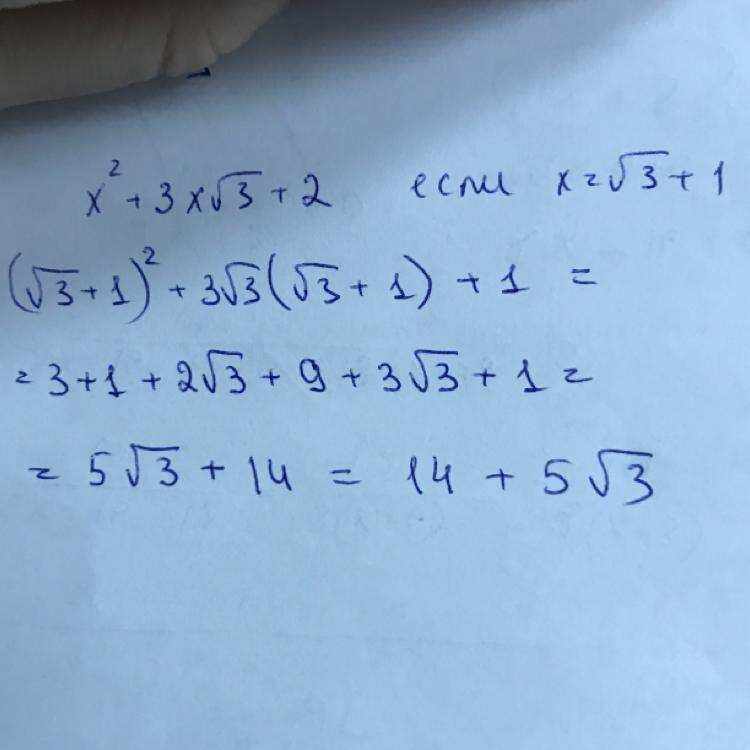 x² + 3x√3 + 2 если x = √3 + 1
(√3 + 1)² + 3√3(√3 + 1) + 1 =
= 3 + 1 + 2√3 + 9 + 3√3 + 1 =
= 5√3 + 14 = 14 + 5√3